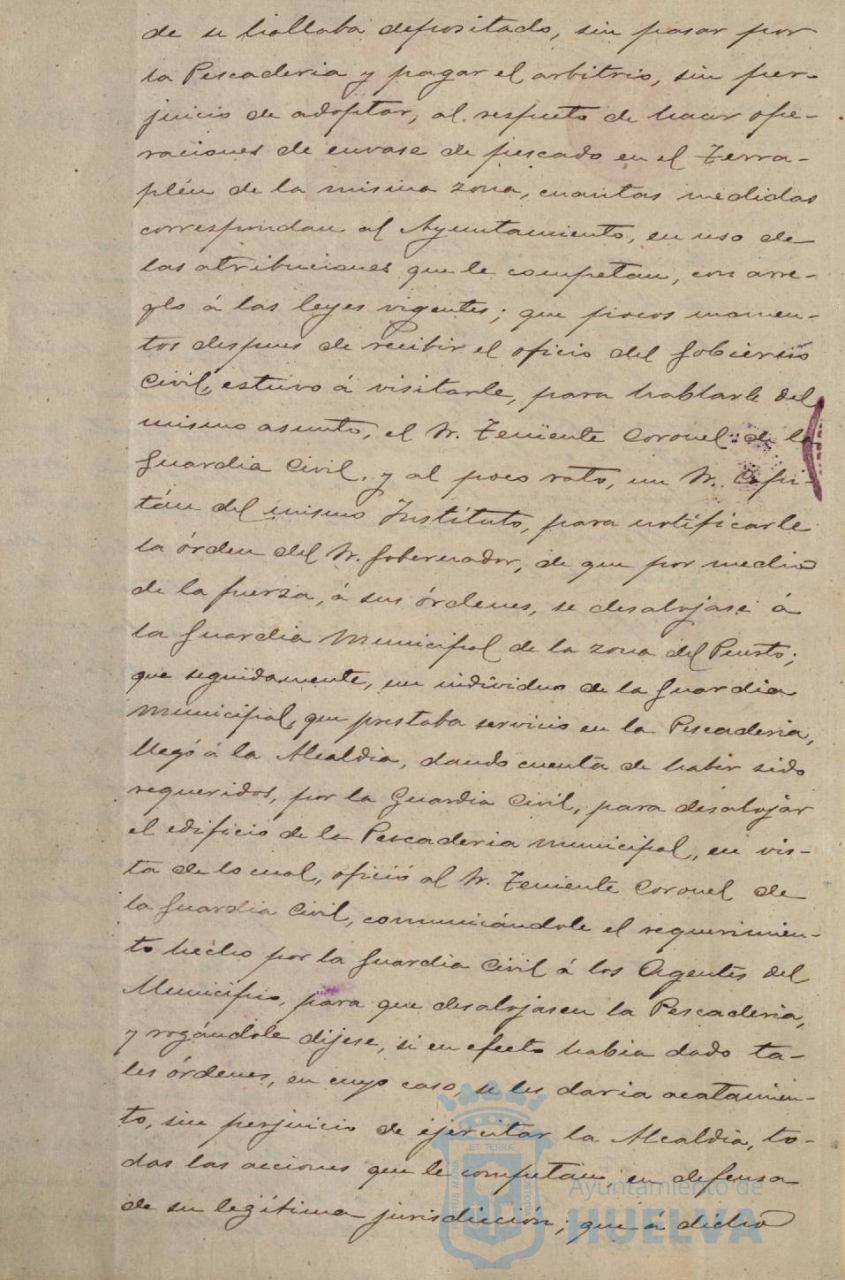 de se hallaba depositado, sin pasar por
la Pescaderia y pagar el arbitrio, sin per-
juicio de adoptar, al respecto de hacer ope-
raciones de envase de pescado en el Terra-
plén de la misma zona, cuantas medidas
correspondan al Ayuntamiento, en uso de
las atribuciones que le competan, con arre-
glo á las leyes vigentes; que pocos momen-
tos despues de recibir el oficio del Gobierno
Civil, estuvo á visitarle, para hablarle del
mismo asunto, el Sr. Teniente Coronel de la
Guardia Civil, y al poco rato, un Sr. Capi-
tán del mismo Instituto, para notificarle
la órden del Sr. Gobernador, de que por medio
de la fuerza, á sus órdenes, se desalojase á
la Guardia Municipal de la zona del Puerto;
que seguidamente, un individuo de la Guardia
Municipal, que prestaba servicio en la Pescaderia,
llegó á la Alcaldia, dando cuenta de haber sido
requeridos, por la Guardia Civil, para desalojar
el edificio de la Pescaderia Municipal, en vis-
ta de lo cual, ofició al Sr. Teniente Coronel de
la Guardia Civil, comunicándole el requerimien-
to hecho por la Guardia Civil á los Agentes del
Municipio, para que desalojasen la Pescaderia,
y rogándole dijese, si en efecto habia dado ta-
les órdenes, en cuyo caso, se les daria acatamien-
to, sin perjuicio de ejercitar la Alcaldia, to-
das las acciones que le competan, en defensa
de su legítima jurisdicción; que á dicho
Ayuntamiento de
HUELVA